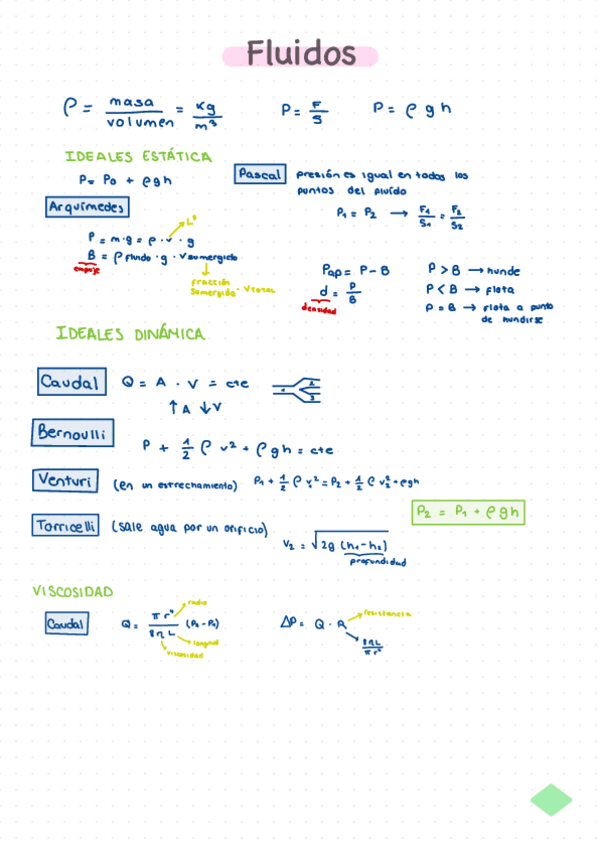 Fluidos
ρ = masa / volumen = kg / m³    P = F / S    P = ρ g h
IDEALES ESTÁTICA
P = P₀ + ρgh
Pascal presión es igual en todos los
puntos del fluído
P₁ = P₂ → F₁ / S₁ = F₂ / S₂
Arquímedes
P = m·g = ρ · v · g
B = ρ fluido · g · V sumergido
empuje
fracción
sumergida · V total
Pap = P - B
d = P / B
densidad
P > B → hunde
P < B → flota
P = B → flota a punto
de hundirse
IDEALES DINÁMICA
Caudal Q = A · V = cte
↑A ↓V
Bernoulli P + 1/2 ρ v² + ρgh = cte
Venturi (en un estrechamiento) P₁ + 1/2 ρ v₁² = P₂ + 1/2 ρ v₂² + ρgh
P₂ = P₁ + ρgh
Torricelli (sale agua por un orificio) V₂ = √2g (h₁-h₂)
profundidad
VISCOSIDAD
Caudal Q = π r⁴ / 8ηL (P₁ - P₂)
radio
longitud
viscosidad
ΔP = Q · R
resistencia
8ηL / π r⁴